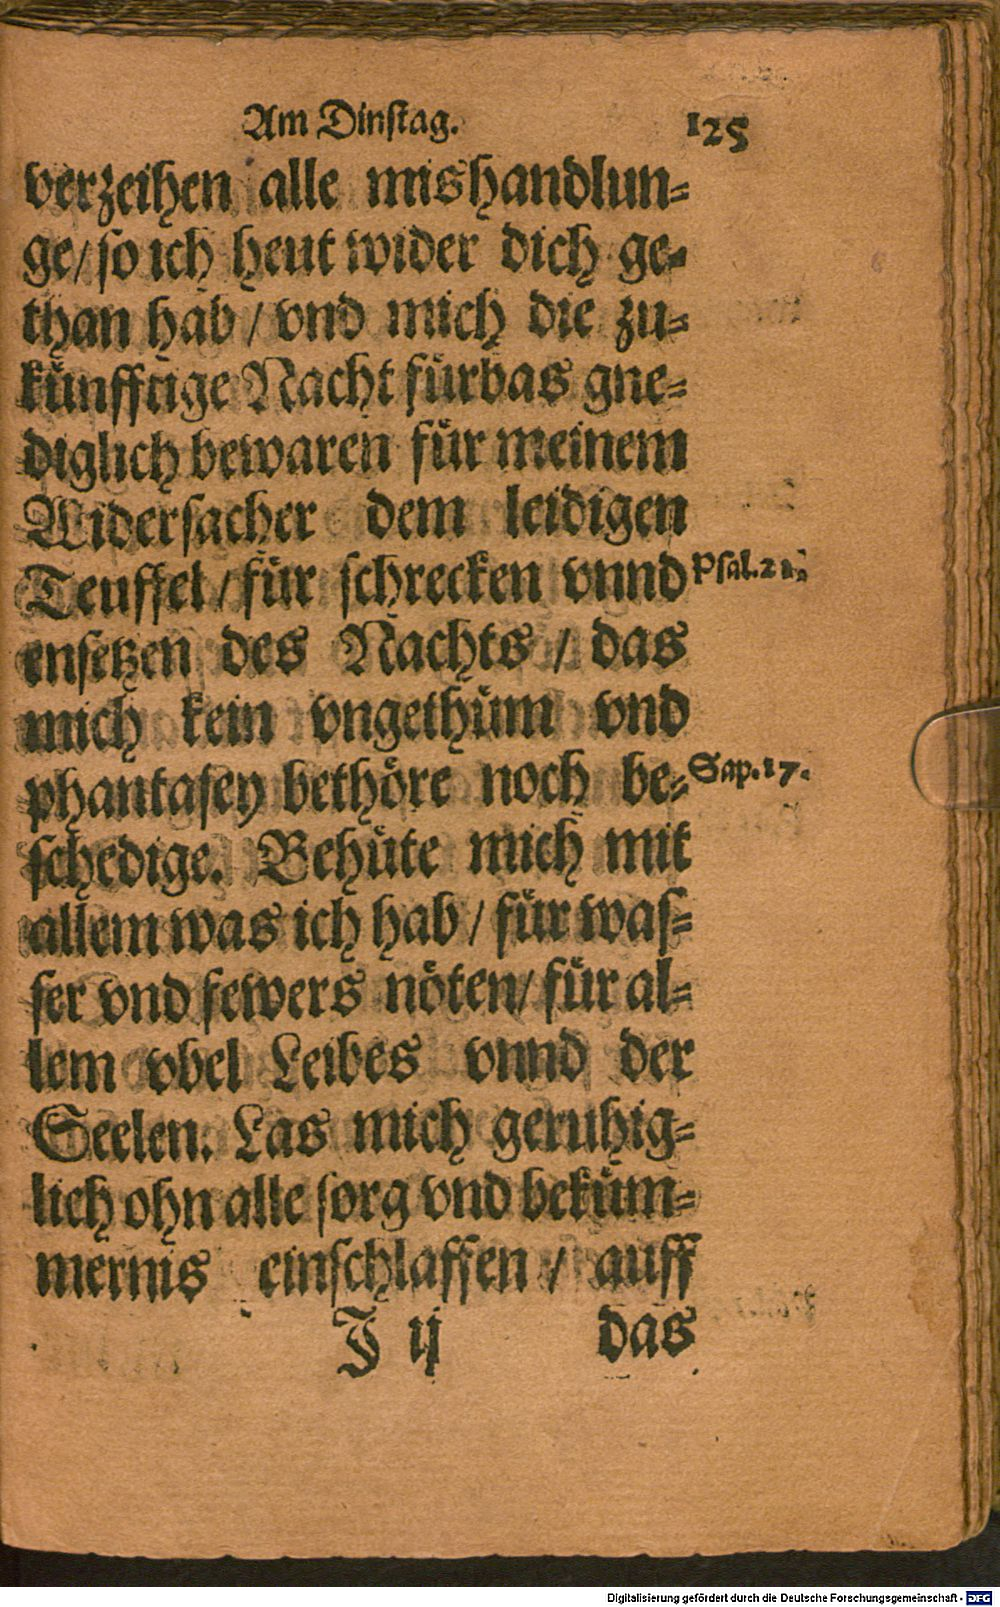 Am Dinstag. 125
verzeihen alle mishandlun-
ge/ so ich heut wider dich ge-
than hab / vnd mich die zu-
künfftige Nacht fürbas gne-
diglich bewaren für meinem
Widersacher dem leidigen
Teuffel / für schrecken vnnd Psal.21.
ensetzen des Nachts / das
mich kein vngethüm vnd
phantasey bethöre noch be- Sap.17.
schedige. Behüte mich mit
allem was ich hab / für was-
ser vnd fewers nöten/ für al-
lem vbel Leibes vnnd der
Seelen. Las mich geruhig-
lich ohn alle sorg vnd beküm-
mernis einschlaffen / auff
J ij das
Digitalisierung gefördert durch die Deutsche Forschungsgemeinschaft - DFG